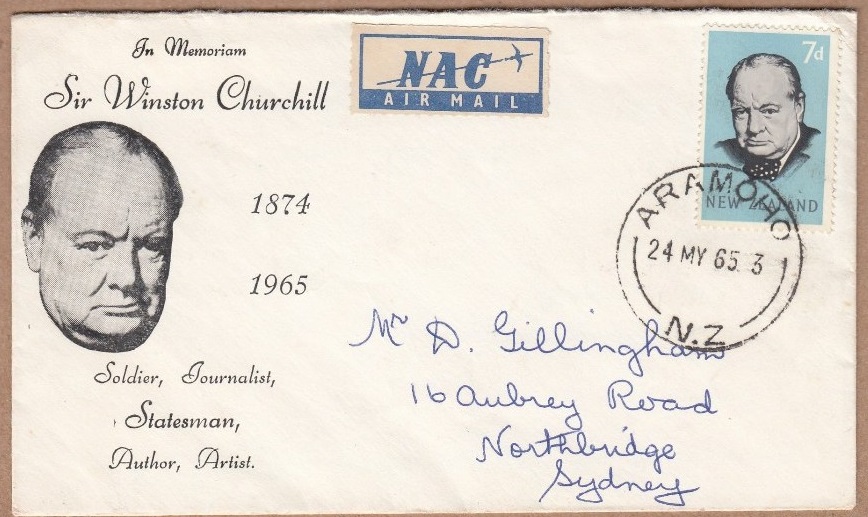 In Memoriam
Sir Winston Churchill
1874
1965
Soldier, Journalist,
Statesman,
Author, Artist.
NAC
AIR MAIL
7d
NEW ZEALAND
ARAMOHO
24 MY 65 3
N.Z
Mr D. Gillingham
16 Aubrey Road
Northbridge
Sydney